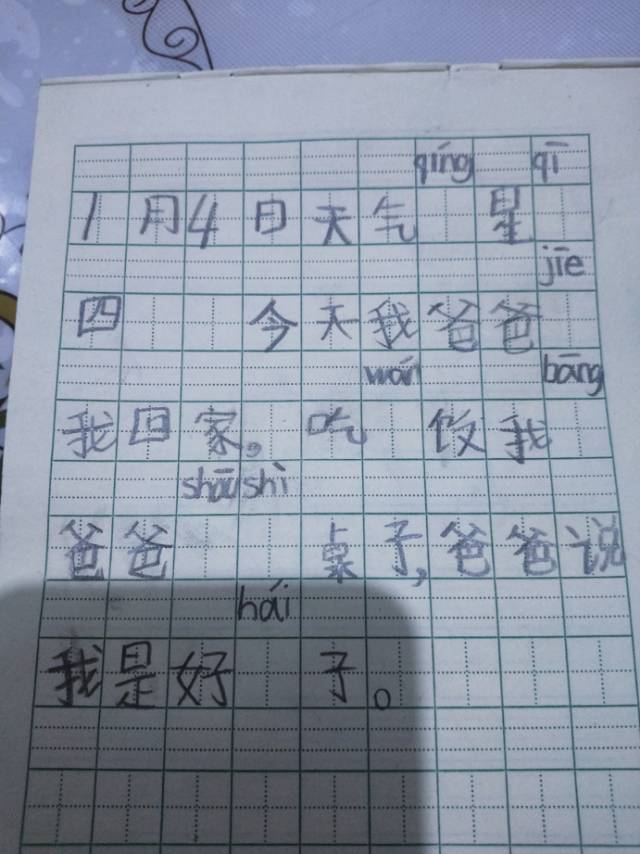 qíng qī
1月4日天气 星
jiē
四 今天我爸爸
wán bāng
我回家。吃 饭我
shōu shì
爸爸 桌子,爸爸说
hái
我是好 子。